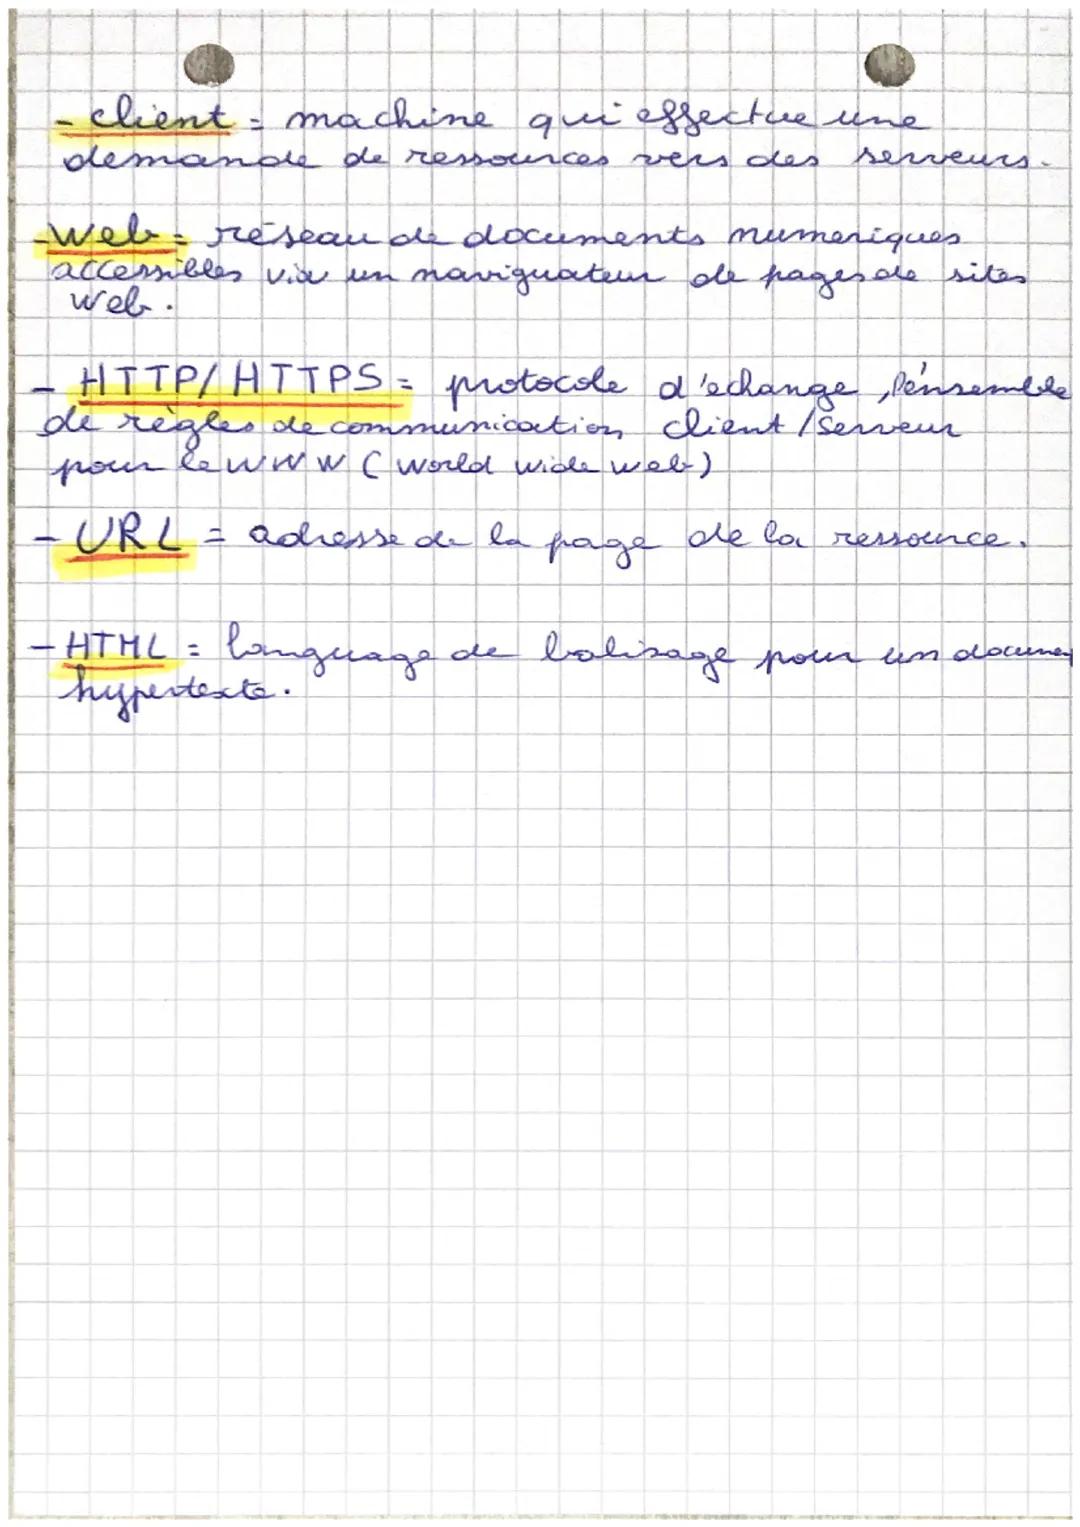 - client = machine qui effectue une
demande de ressources vers des serveurs.
- Web = réseau de documents numeriques
accessibles via un naviguateur de pages de sites
web.
- HTTP/HTTPS = protocole d'echange, l'ensemble
de règles de communication client / Serveur
pour le WWW ( World wide web)
- URL = adresse de la page de la ressource.
- HTML = language de balisage pour un documen
hypertexte.